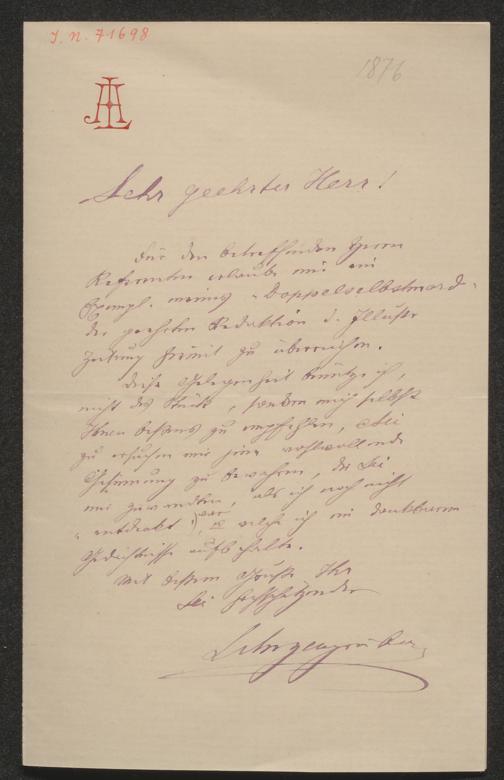 I. N. 71698
1876
AL
Sehr geehrter Herr!
Für den betreffenden Herrn
Referenten erlaube mir ein
Exempl. meines "Doppelselbstmord"
der geehrten Redaktion d. Illustr
Zeitung hiemit zu überreichen.
Diese Gelegenheit benütze ich,
nicht das Stück, sondern mich selbst
Ihnen bestens zu empfehlen, Sei
zu ersuchen mir jene wohlwollende
Gesinnung zu bewahren, die Sei
mir zuwandten, als ich noch nicht
"entdeckt" war, welche ich in dankbarem
Gedächtnisse aufbehalte.
Mit bestem Gruße Ihr
Sei hochschätzender
LAnzengruber